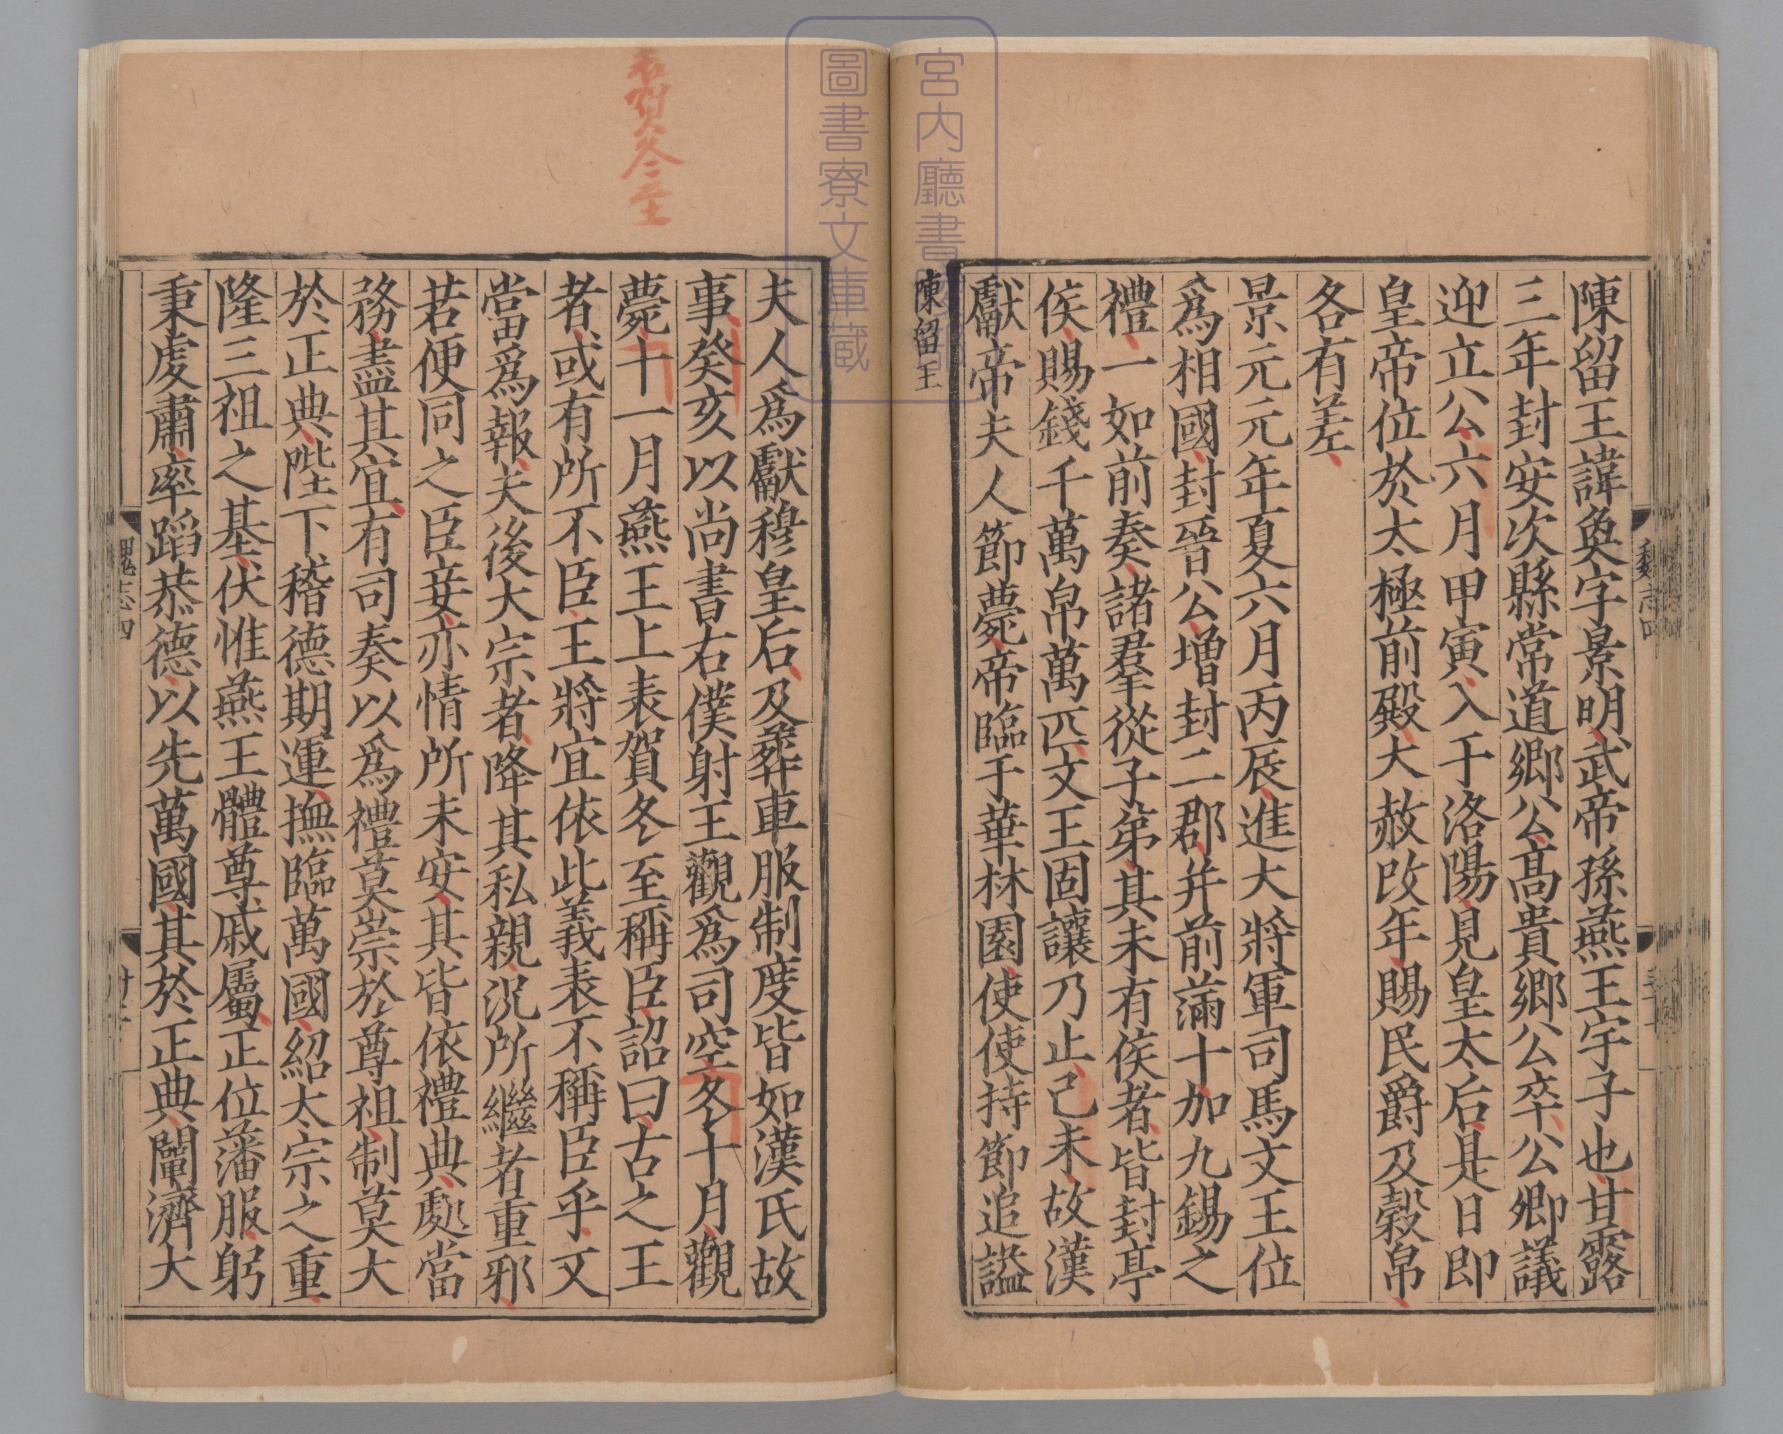 陳留王諱奐字景明武帝孫燕王宇子也甘露
三年封安次縣常道鄉公高貴鄉公卒公卿議
迎立公六月甲寅入于洛陽見皇太后是日即
皇帝位於太極前殿大赦改年賜民爵及穀帛
各有差
景元元年夏六月丙辰進大將軍司馬文王位
爲相國封晉公增封二郡并前滿十加九錫之
禮一如前奏諸羣從子弟其未有侯者皆封亭
侯賜錢千萬帛萬匹文王固讓乃止己未故漢
獻帝夫人節薨帝臨于華林園使使持節追謚
陳留王
夫人爲獻穆皇后及葬車服制度皆如漢氏故
事癸亥以尚書右僕射王觀爲司空冬十月觀
薨十一月燕王上表賀冬至稱臣詔曰古之王
者或有所不臣王將宜依此義表不稱臣乎又
當爲報夫後大宗者降其私親況所繼者重邪
若便同之臣妾亦情所未安其皆依禮典處當
務盡其宜有司奏以爲禮莫崇於尊祖制莫大
於正典陛下稽德期運撫臨萬國紹太宗之重
隆三祖之基伏惟燕王體尊戚屬正位藩服躬
秉虔肅率蹈恭德以先萬國其於正典闡濟大
魏志四
魏志四
表賀冬至
宮内廳書
圖書寮文庫藏